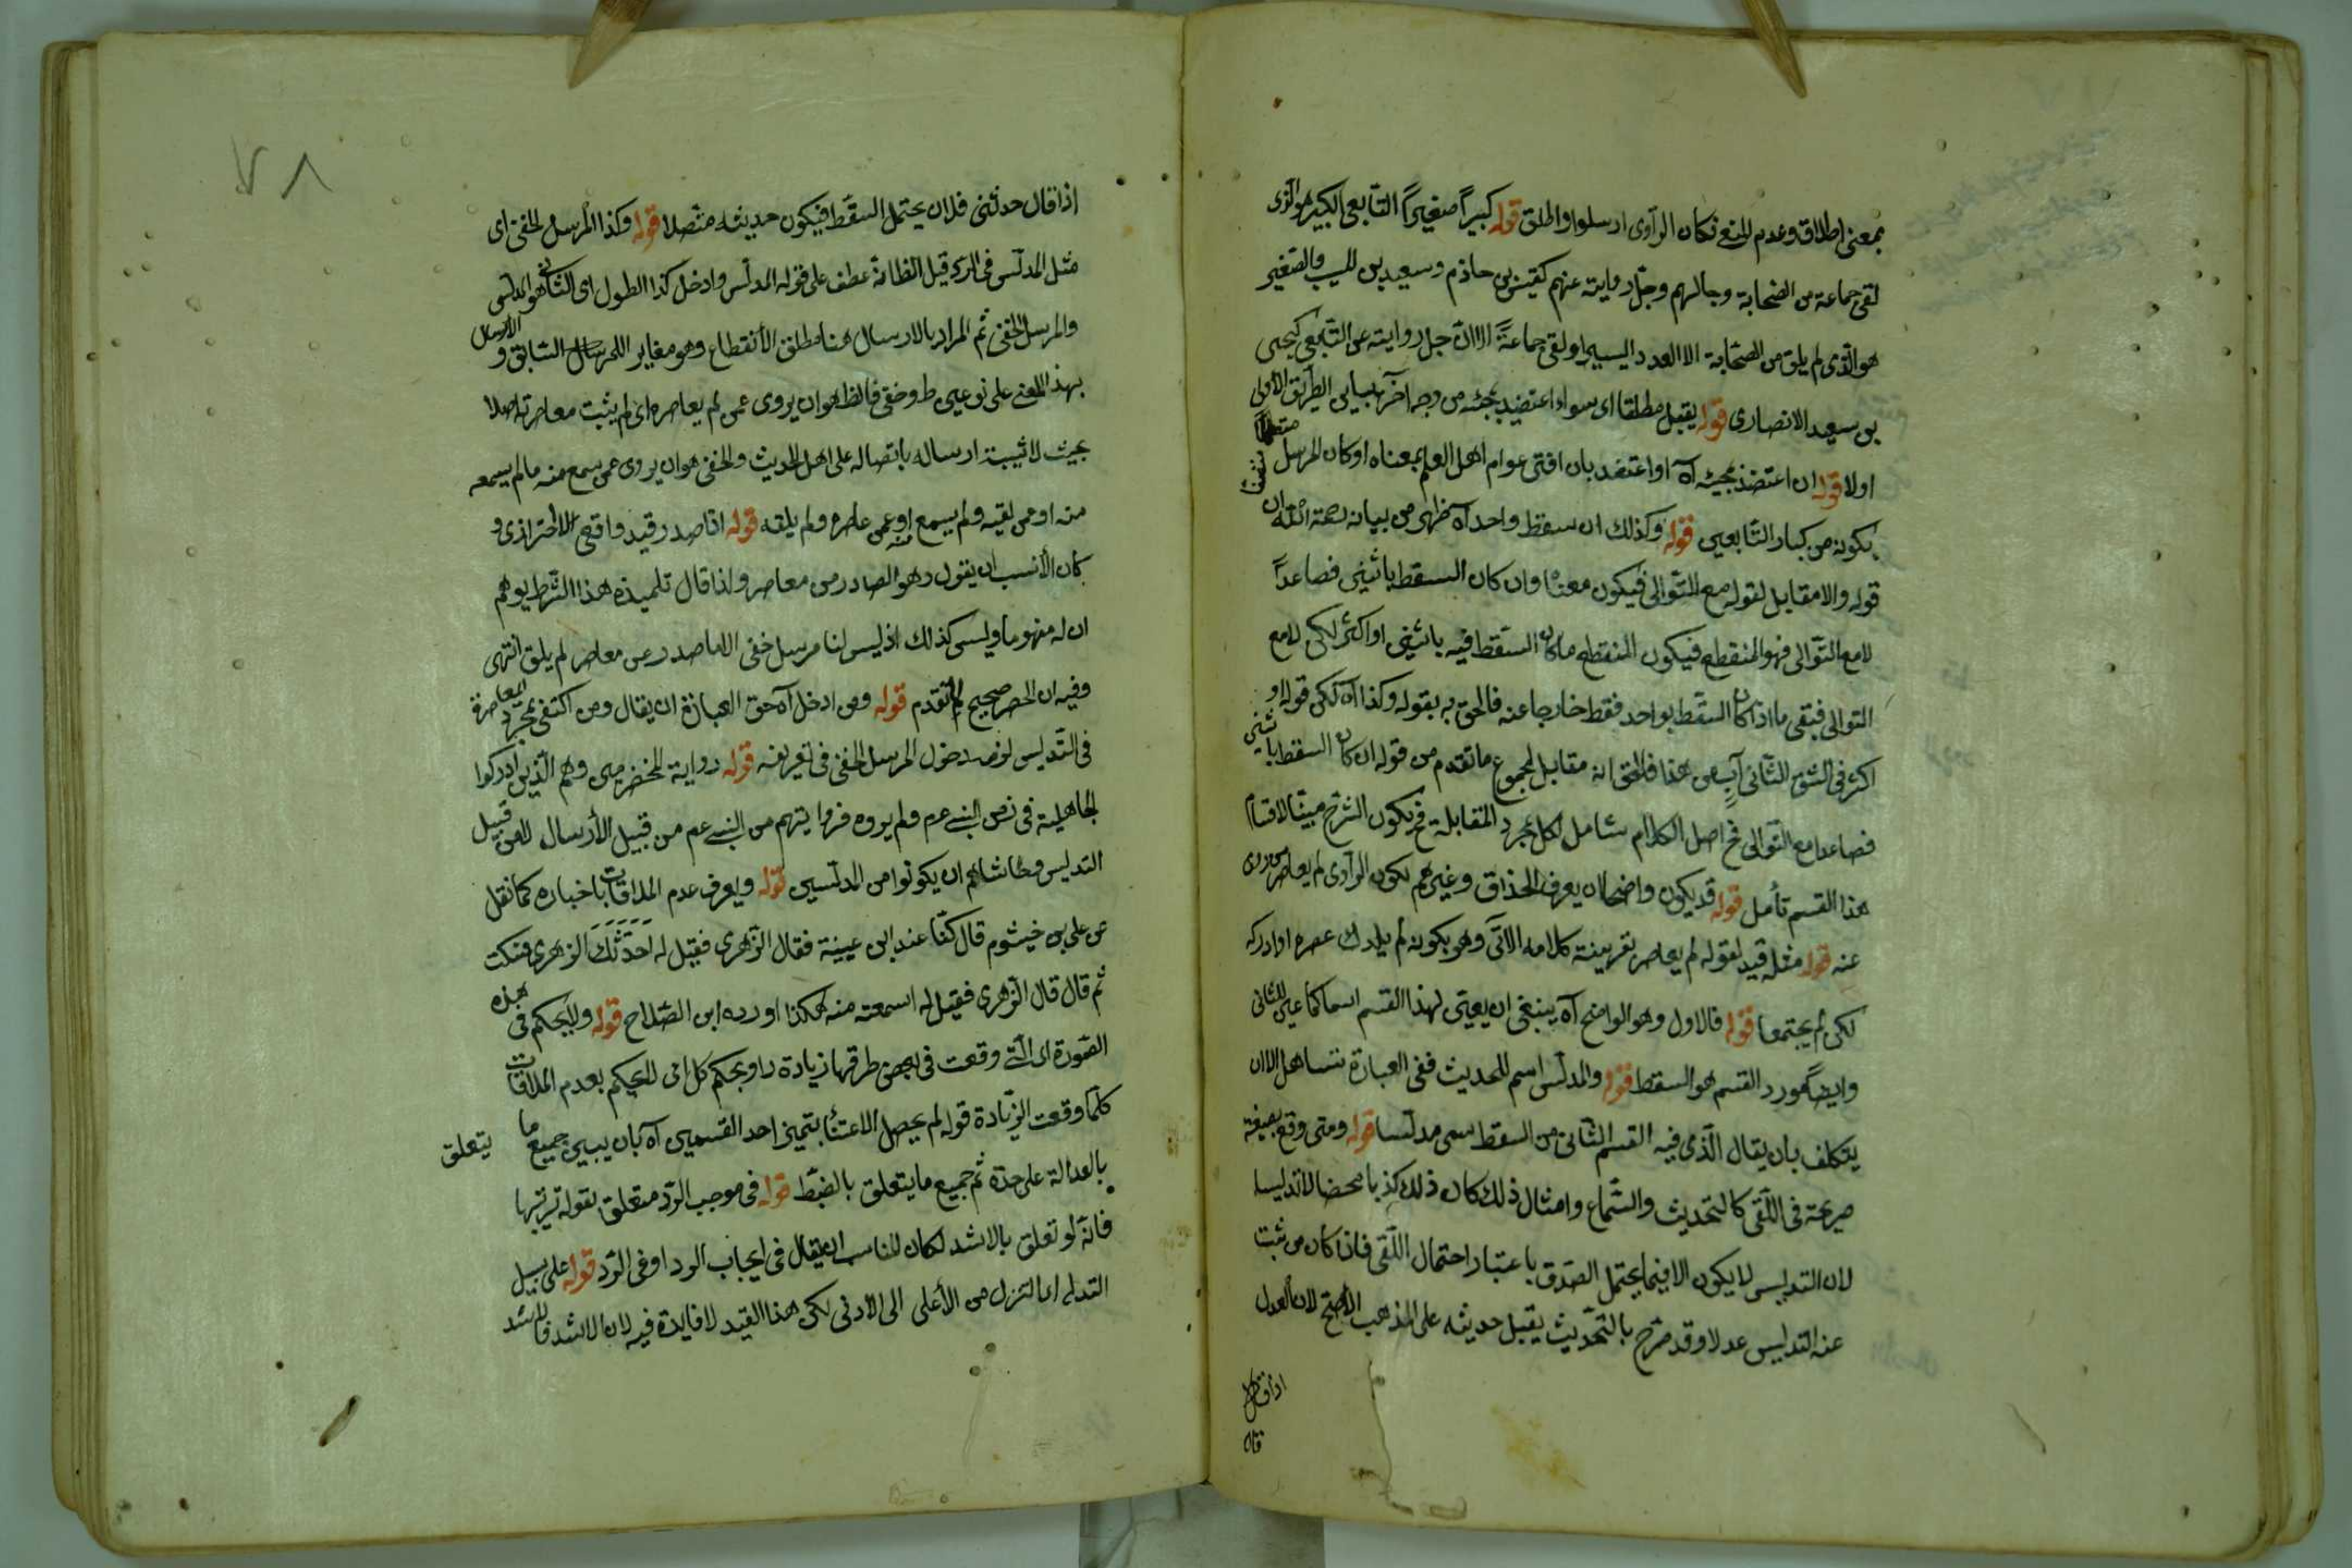 بمعنى اطلاقه وعدم المنع فكان الراوى ارسلوا واطلق قوله كبيراً صغيراً التابعى الكبير هو الذى
لقى جماعة من الصحابة وجالسهم وجلّ روايته عنهم كقيس بن حازم وسعيد بن المسيب والصغير
هو الذى لم يلق من الصحابة الا العدد اليسير او لقى جماعةً الا ان جل روايته عن التابعى كيحيى
بن سعيد الانصارى قوله يقبل مطلقا اى سواء اعتضد بمجيئه من وجه آخر يباين الطريق الاولى
اولا قوله ان اعتضد بمجيئه آه او اعتضد بان افتى عوام اهل العلم بمعناه او كان المرسل
يكونه من كبار التابعين قوله وكذلك ان سقط واحد آه ظهر من بيانه رحمة الله ان
قوله والا مقابل لقوله مع التوالى فيكون معناه وان كان السقط باثنين فصاعداً
لا مع التوالى فهو المنقطع فيكون المنقطع ما كان السقط فيه باثنين او اكثر لكن لا مع
التوالى فبقى ما اذا كان السقط بواحد فقط خارجا عنه فالحق به بقوله وكذا آه لكن قوله او
اكثر فى الشق الثانى آب عن هذا فالحق انه مقابل لمجموع ما تقدم من قوله ان كان السقط باثنين
فصاعدا مع التوالى فح اصل الكلام شامل لكل بمجرد المقابلة فح يكون الشرح مبينا لاقسام
هذا القسم تأمل قوله قد يكون واضحا ان يعرف الحذاق وغيرهم بكون الراوى لم يعاصر من روى
عنه قوله مثله قيد لقوله لم يعاصر بقرينة كلامه الآتى وهو بكونه لم يدرك عصره او ادركه
لكن لم يجتمعا قوله فالاول وهو الواضح آه ينبغى ان يعين لهذا القسم اسما كما عين للثانى
وايضا مورد القسم هو السقط قوله والمدلس اسم للحديث ففى العبارة تساهل الا ان
يتكلف بان يقال الذى فيه القسم الثانى من السقط سمى مدلسا قوله ومتى وقع بصيغة
صريحة فى اللقى كالتحديث والسماع وامثال ذلك كان ذلك كذبا محضا لا تدليسا
لان التدليس لا يكون الا فيما يحتمل الصدق باعتبار احتمال اللقى فاذا كان من ثبت
عنه التدليس عدلا وقد صرح بالتحديث يقبل حديثه على المذهب الاصح لان العدل
اذا قال
اذا قال حدثنى فلان يحتمل السقط فيكون حديثه متصلا قوله وكذا المرسل الخفى اى
مثل المدلس فى الرد قيل الظا انه عطف على قوله المدلس وادخل كذا الطول اى الثانى هو المدلس
والمرسل الخفى ثم المراد بالارسال هنا مطلق الأنقطاع وهو مغاير للارسال السابق و الارسال
بهذا المعنى على نوعين ظ وخفى فالظاهر ان يروى عمن لم يعاصره اى لم يثبت معاصرته اصلا
بحيث لا يثبت ارساله باتصاله على اهل الحديث والخفى هو ان يروى عمن سمع منه ما لم يسمعه
منه او عمن لقيه ولم يسمع منه او عمن عاصره ولم يلقه قوله اذا صدر قيد واقعى لا احترازى و
كان الأنسب ان يقول وهو الصادر من معاصر ولذا قال تلميذه هذا الشرط يوهم
ان له مفهوما وليس كذلك اذ ليس لنا مرسل خفى الا ما صدر عن معاصر لم يلق انتهى
وفيه ان الحصر صحيح لما تقدم قوله ومن ادخل آه حق العبارة ان يقال ومن اكتفى بمجرد المعاصرة
فى التدليس لزمه دخول المرسل الخفى فى تعريفه قوله رواية المخضرمين وهم الذين ادركوا
الجاهلية فى زمن النبى عم ولم يروه فروايتهم من النبى عم من قبيل الأرسال لا من قبيل
التدليس وحاشاهم ان يكونوا من المدلسين قوله ويعرف عدم الملاقات باخباره كما نقل
عن على بن خيشوم قال كنا عند ابن عيينة فقال الزهرى فقيل له احدثك الزهرى فسكت
ثم قال قال الزهرى فقيل له اسمعته منه هكذا اورده ابن الصلاح قوله ولا يحكم فى هذه
الصورة اى التى وقعت فى بعض طرقها زيادة راو بحكم كلى اى لا يحكم بعدم الملاقات
كلما وقعت الزيادة قوله لم يحصل الاعتناء بتمييز احد القسمين آه بان يبين جميع ما يتعلق
بالعدالة على حدة ثم جميع ما يتعلق بالضبط قوله فى موجب الرد متعلق بقوله ترتيبها
فانه لو تعلق بالاشد لكان المناسب ان يقال فى ايجاب الرد او فى الرد قوله على سبيل
التدلى اى التنزل من الأعلى الى الادنى لكن هذا القيد لا فايدة فيه لان الاشد فالاشد